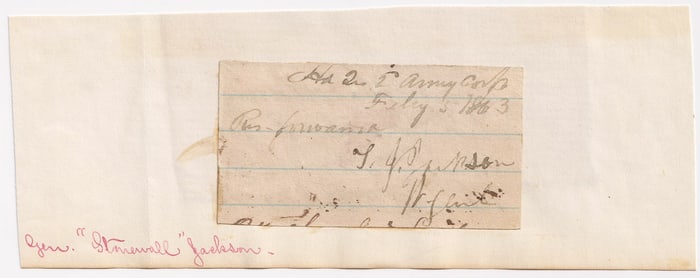 Hd Qrs 2 Army Corps
Feby 5 1863
Res. forwarded
T. J. Jackson
Lt Genl.
Gen. "Stonewall" Jackson.